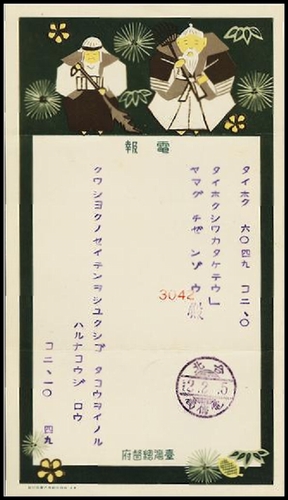 電報
タイホク 六〇四九 コ二、〇
タイホクシワカタケテウ」
ヤマグチゼンゾウ 殿
3042
クワシヨクノゼイテンヲシユクシゴタコウヲイノル
ハルナコウジロウ
コ二、一〇 四九
12.2.5
臺灣總督府